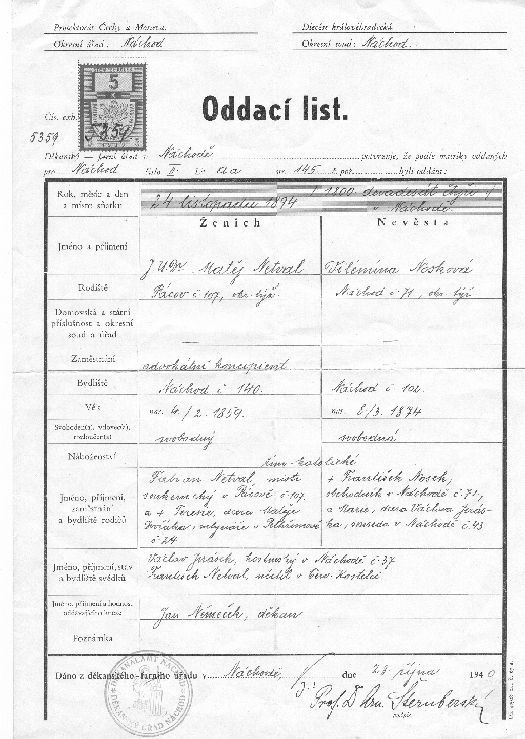 Protektorát Čechy a Morava.
Diecése královéhradecká.
Okresní úřad: Náchod
Okresní soud: Náchod.
5
Oddací list.
Čís. exh.
5359
Děkanský — farní úřad v Náchodě potvrzuje, že podle matriky oddaných
pro Náchod číslo II. str. 145 byli oddáni:
Rok, měsíc a den
a místo sňatku
24 listopadu 1894
/ 1800 devadesát čtyři /
v Náchodě.
Ženich
Nevěsta
Jméno a příjmení
JUDr. Matěj Netval
Vilemína Nosková
Rodiště
Pacov č 107, okr. týž.
Náchod č 71, okr. týž
Domovská a státní
příslušnost a okresní
soud a úřad
Zaměstnání
advokátní koncipient
Bydliště
Náchod č 140.
Náchod č 102.
Věk
nar. 4/2. 1859.
nar. 8/3. 1874
Svoboden(a), vdovec(a),
rozloučen(a)
svobodný
svobodná
Náboženství
řím-katolické
Jméno, příjmení,
zaměstnání
a bydliště rodičů
Fabian Netval, mistr
soukenický v Pacově č 107.
a + Terezie, dcera Matěje
Dvořáka, v Pelhřimově
č 24
+ František Nosek,
obchodník v Náchodě č 71,
a Marie, dcera Václava Jirás-
ka, souseda v Náchodě č 43
Jméno, příjmení, stav
a bydliště svědků
Václav Jirásek, v Náchodě č 37
František Netval, učitel v Červ. Kostelci
Jméno, příjmení a hodnost
oddávajícího kněze
Jan Němeček, děkan
Poznámka
Dáno z děkanského - farního úřadu v Náchodě, dne 29. října 1940
Prof. Dr.